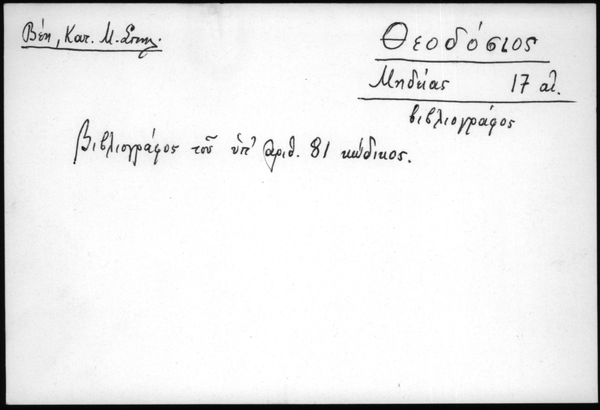 Βέη, Κατ. Μ. Σπηλ.
Θεοδόσιος
Μηδείας 17 αἰ.
βιβλιογράφος
Βιβλιογράφος τοῦ ὑπ' ἀριθ. 81 κώδικος.